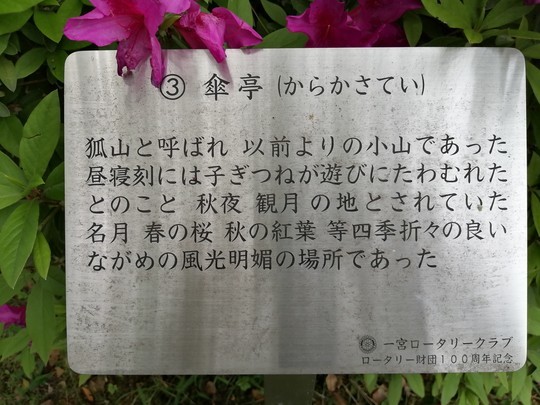 ③ 傘亭 (からかさてい)
狐山と呼ばれ 以前よりの小山であった
昼寝刻には子ぎつねが遊びにたわむれた
とのこと 秋夜 観月 の地とされていた
名月 春の桜 秋の紅葉 等四季折々の良い
ながめの風光明媚の場所であった
一宮ロータリークラブ
ロータリー財団100周年記念